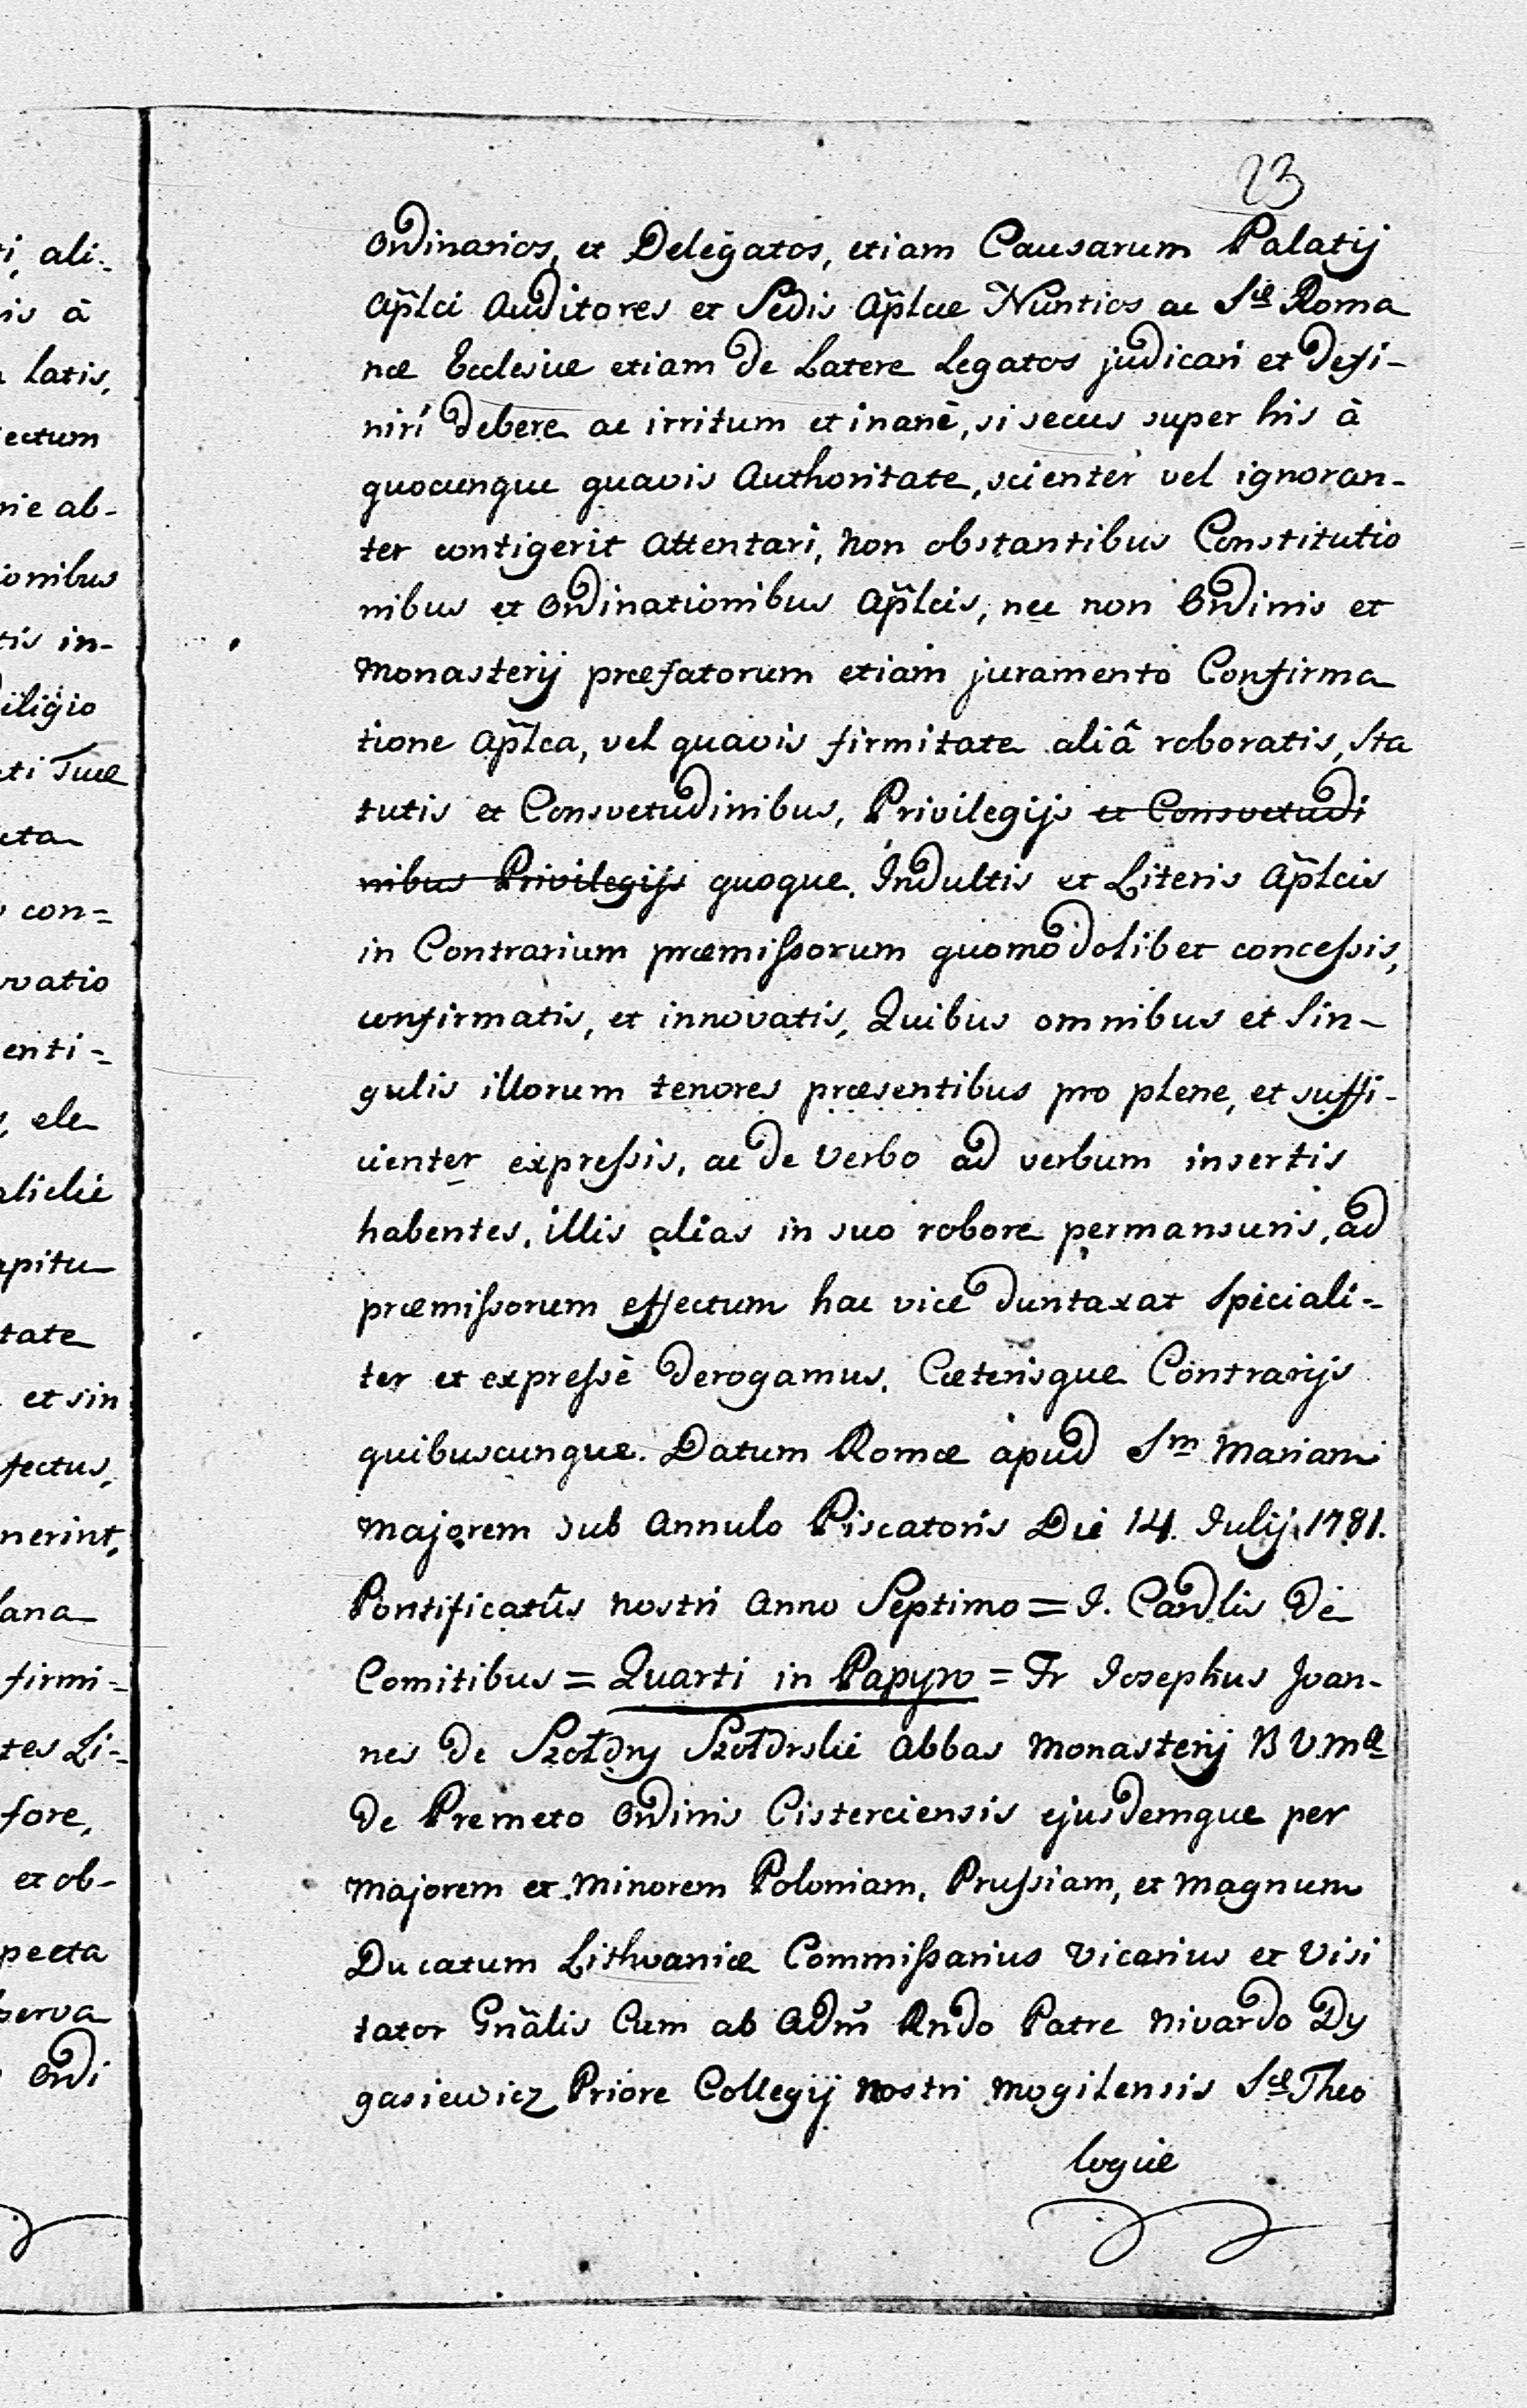 23
Ordinarios, et Delegatos, etiam Causarum Palatij
Aplci Auditores et Sedis Aplcae Nuntios ac Scae Roma
nae Ecclesiae etiam de Latere Legatos judicari et defi-
niri debere ac irritum et inanè, si secus super his à
quocunque quavis Authoritate, scienter vel ignoran-
ter contigerit Attentari, Non obstantibus Constitutio
nibus et Ordinationibus Aplcis, nec non Ordinis et
Monasterij praefatorum etiam juramento Confirma
tione Aplca, vel quavis firmitate aliâ roboratis, Sta
tutis et Consvetudinibus, Privilegijs et Consvetudi
nibus Privilegijs quoque. Indultis et Literis Aplcis
in Contrarium praemissorum quomodolibet concessis,
confirmatis, et innovatis, Quibus omnibus et Sin-
gulis illorum tenores praesentibus pro plene, et suffi-
cienter expressis, ac de Verbo ad verbum insertis
habentes, illis alias in suo robore permansuris, ad
praemissorum effectum hac vice duntaxat Speciali-
ter et expressè derogamus. Caeterisque Contrarijs
quibuscunque. Datum Romae apud Sm Mariam
Majorem sub Annulo Piscatoris Die 14. Julij 1781.
Pontificatûs nostri Anno Septimo = I. Cardlis De
Comitibus = Quarti in Papyro = Fr Josephus Joan-
nes de Szołdry Szołdrski Abbas Monasterij B V. Mae
de Premeto Ordinis Cisterciensis ejusdemque per
Majorem et Minorem Poloniam, Prussiam, et Magnum
Ducatum Lithvaniae Commissarius Vicarius et Visi
tator Gnãlis Cum ab Adm̃ Rndo Patre Nivardo Dy
gasiewicz Priore Collegij Nostri Mogilensis Scae Theo
logiae
ali-
is à
Latis,
ectum
nie ab-
ionibus
tis in-
iligio
ti Tuae
con=
rvatio
enti=
ele
apitu
tate
et sin
fectus,
nerint,
lana
firmi=
tes Li=
fore,
et ob-
pecta
serva
Ordi